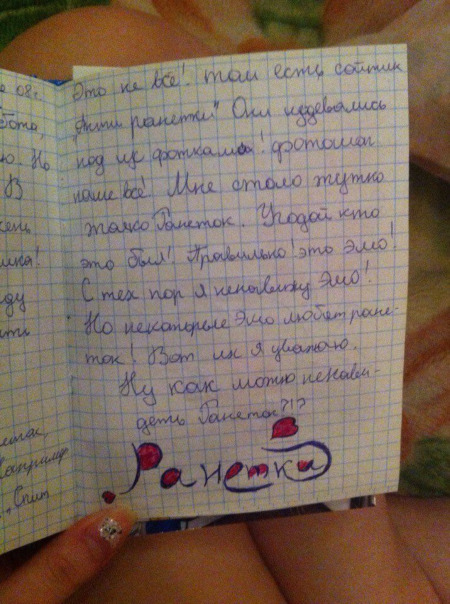 е 08г.
Бота,
ю. Но
В
ень
мка!
иду
ить
Например
„Спит
Это не всё! там есть сайтик
„Анти ранетки" Они издевались
над их фотками! фотошоп
наше всё! Мне стало жутко
жалко Ранеток. Угадай кто
это был! Правильно! это Эмо!
С тех пор я ненавижу Эмо!
Но некоторые Эмо любят ране-
ток! Вот их я уважаю.
Ну как можно ненави-
деть Ранеток?!?
Ранетка